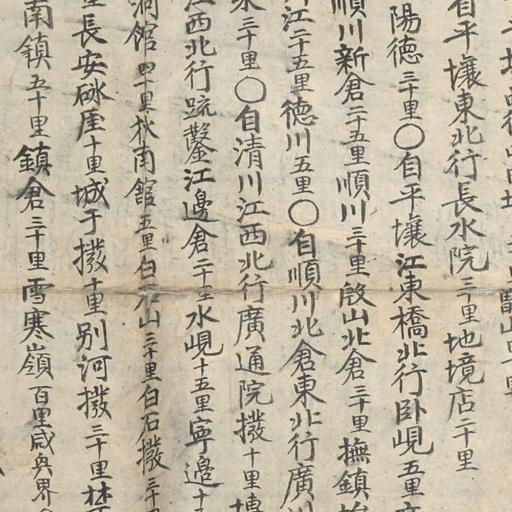 自平壤東北行長水院三十里地境店二十里
陽德三十里〇自平壤江東橋北行卧峴五里
順川新倉二十五里順川三十里殷山北倉三十里撫鎮
江二十五里德川五里〇自順川北倉東北行廣
三十里〇自清川江西北行廣通院撥十里博
江西北行䟽鑿江邊倉二十里水峴十五里寧邊十
洞館四十里狄南舘五里白石山三十里白石撥三十
里長安砯厓十里城于撥十里别河撥三十里林
南鎮五十里鎮倉三十里雪寒嶺百里咸與界